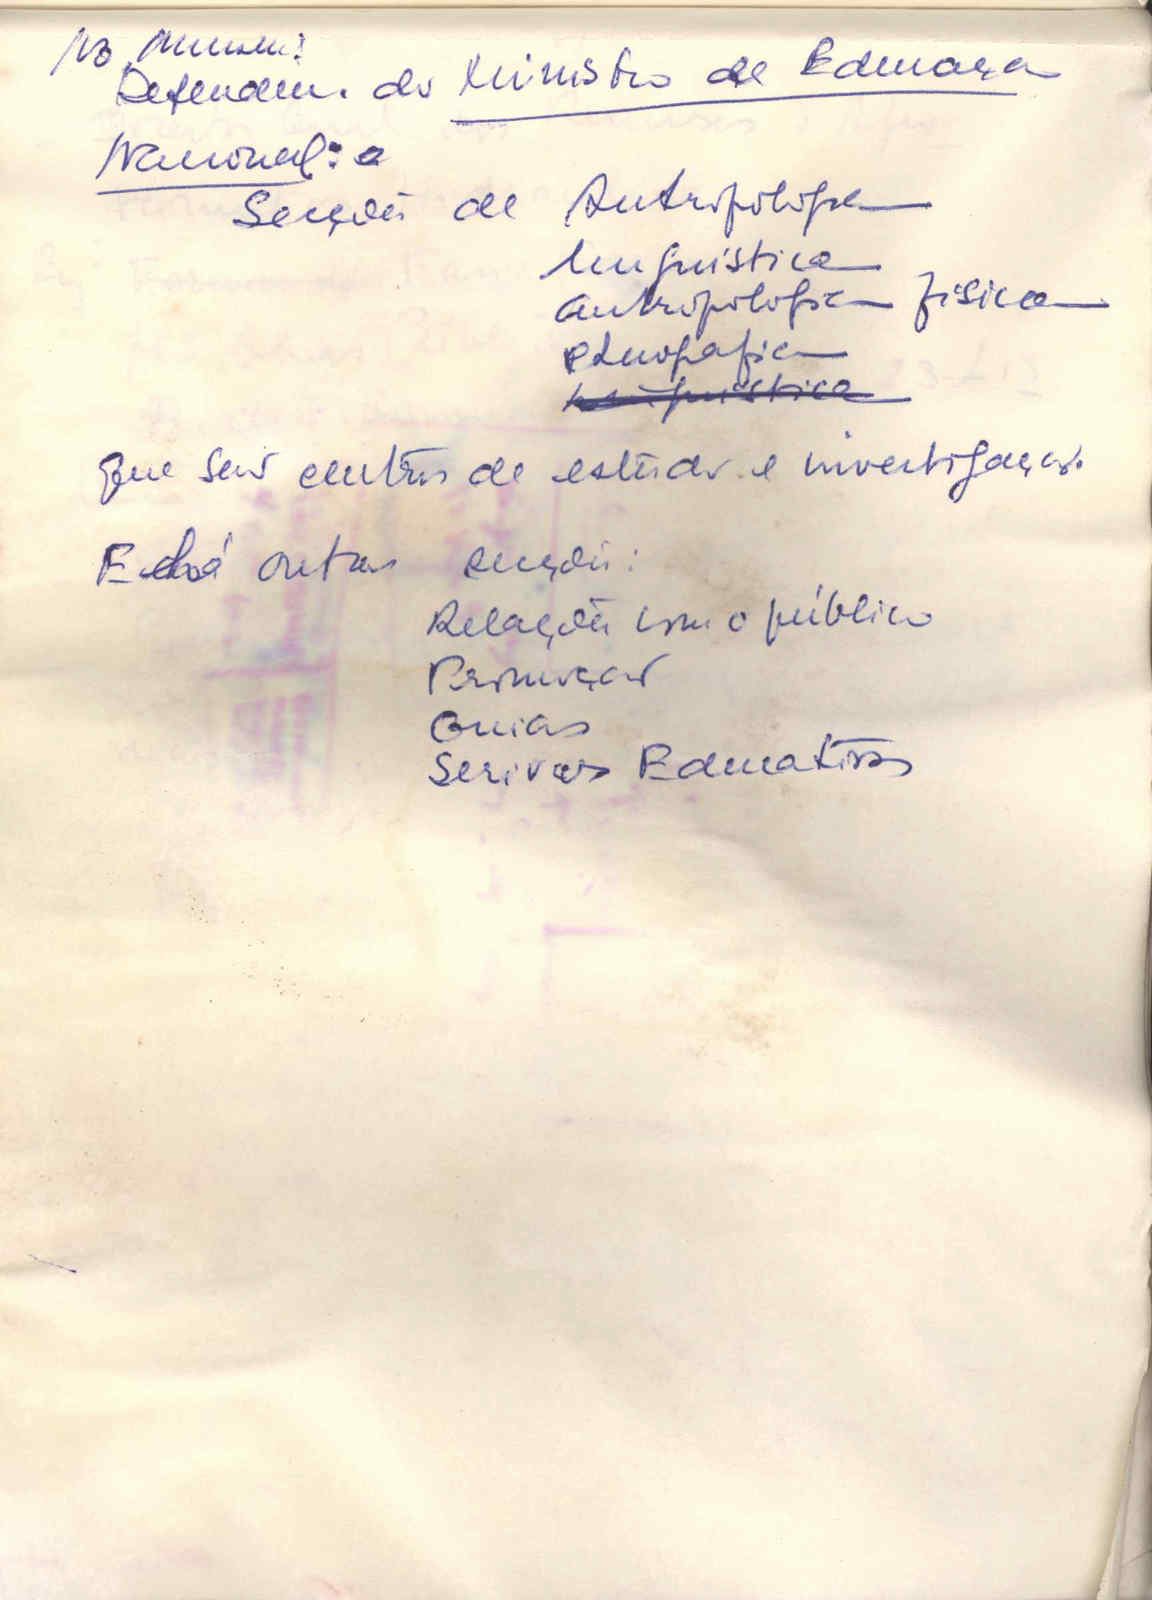 No Museu:
Dependem do Ministro de Educação
Nacional: a
Secções de Antropologia
linguística
antropologia física
etnografia
linguística
que são centros de estudo e investigação.
E há outras secções:
Relações com o público
Promoção
Guias
Serviços Educativos